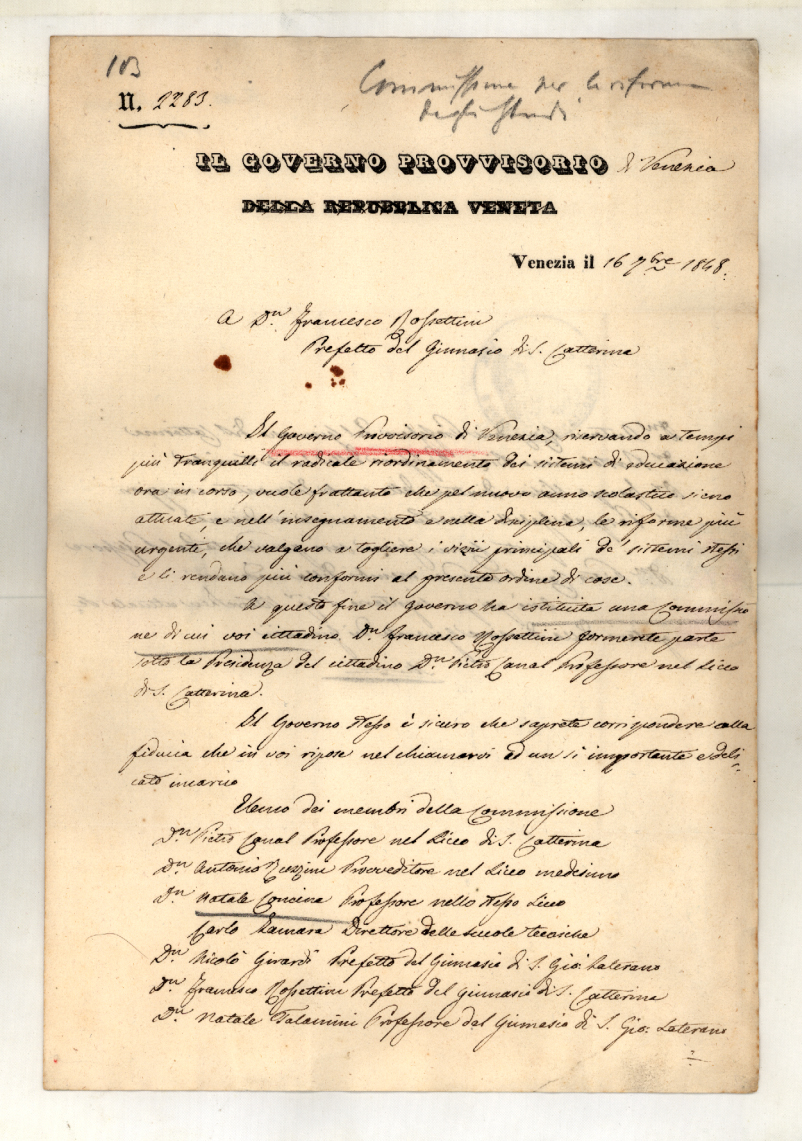 103
N. 2283.
Commissione per la riforma
degli studi
IL GOVERNO PROVVISORIO di Venezia
DELLA REPUBBLICA VENETA
Venezia il 16 7bre 1848.
A Dn. Francesco Rossettini
Prefetto del Ginnasio di S. Catterina
Il Governo Provvisorio di Venezia, riservando a tempi
più tranquilli il radicale riordinamento dei sistemi di educazione
ora in corso, vuole frattanto che pel nuovo anno scolastico sieno
attuate, e nell'insegnamento e nella disciplina, le riforme più
urgenti, che valgano a togliere i vizii principali de' sistemi stessi
e li rendano più conformi al presente ordine di cose.
A questo fine il governo ha istituita una Commissio
ne di cui voi cittadino Dn. Francesco Rossettini formerete parte
sotto la Presidenza del cittadino Dn. Pietro Canal Professore nel Liceo
di S. Catterina.
Il Governo stesso è sicuro che saprete corrispondere alla
fiducia che in voi ripose nel chiamarvi ad un sì importante e deli=
cato incarico
Elenco dei membri della Commissione
Dn. Pietro Canal Professore nel Liceo di S. Catterina
Dn. Antonio Provveditore nel Liceo medesimo
Dn. Natale Concina Professore nello stesso Liceo
Carlo Direttore delle scuole tecniche
Dn. Nicolò Girardi Prefetto del Ginnasio di S. Gio. Laterano
Dn. Francesco Rossettini Prefetto del Ginnasio di S. Catterina
Dn. Natale Talamini Professore del Ginnasio di S. Gio. Laterano